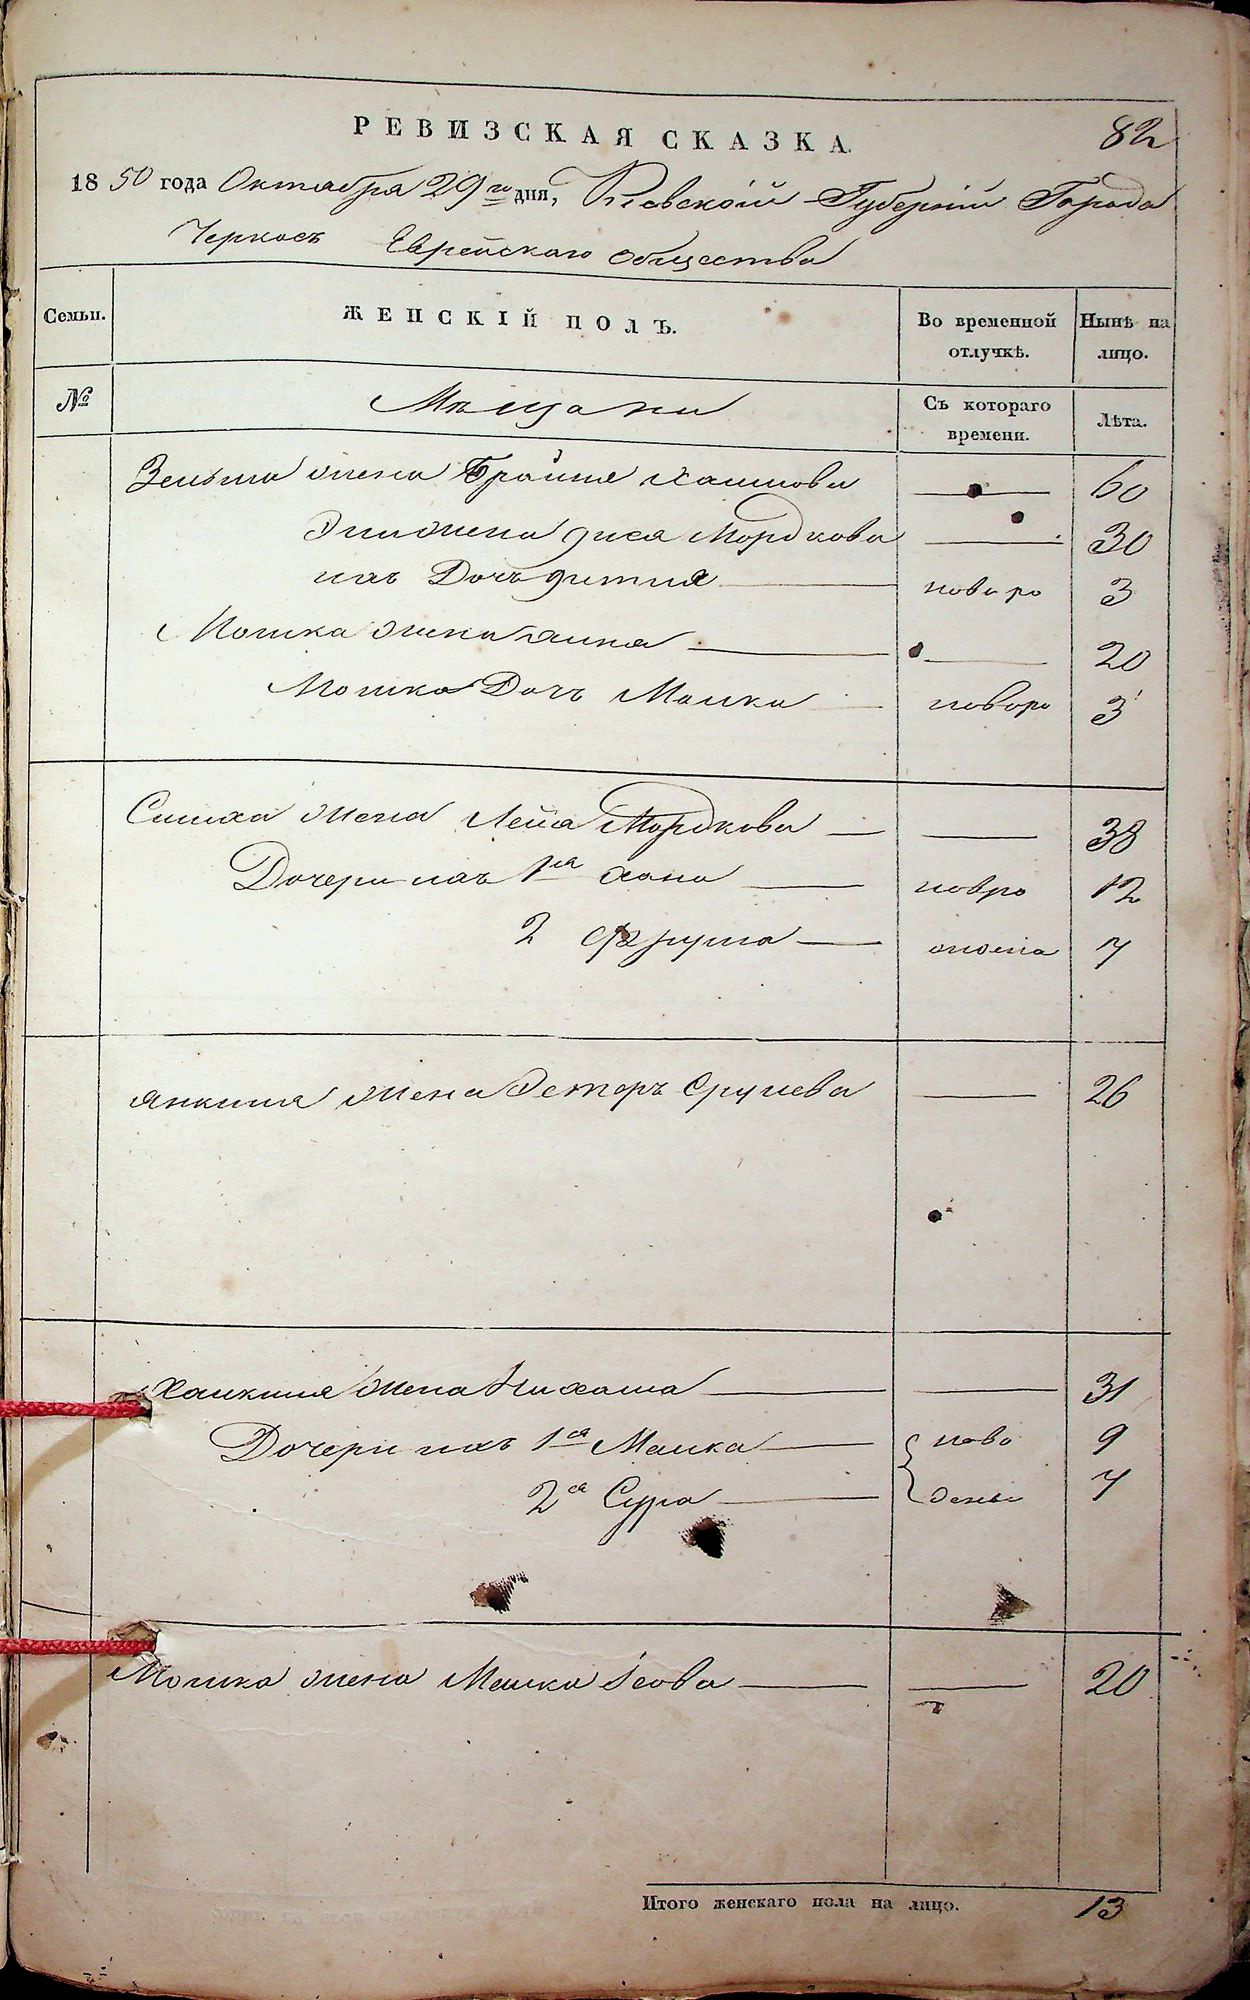 РЕВИЗСКАЯ СКАЗКА.
82
1850 года Октября 29го дня, Киевской Губернии Города
Черкасъ Еврейскаго общества
Семьи.
ЖЕНСКІЙ ПОЛЪ.
Во временной отлучкѣ.
Нынѣ на лицо.
№
Мѣщани
Съ котораго времени.
Лѣта.
жена Браина Хаимова — 60
жена Мордкова — 30
ихъ Дочь новоро 3
Мошка жена — 20
Мошка Дочь Малка новоро 3
Симха жена Лейя Мордкова — — 38
Дочери ихъ 1ая Хана — новро 12
2 Фрума — 7
Янкиля жена Эстеръ Срулева — 26
Хаикиля жена — — 31
Дочери ихъ 1ая Малка — ново 9
2ая Сура — 7
Мошка жена Малка — — 20
Итого женскаго пола на лицо. 13